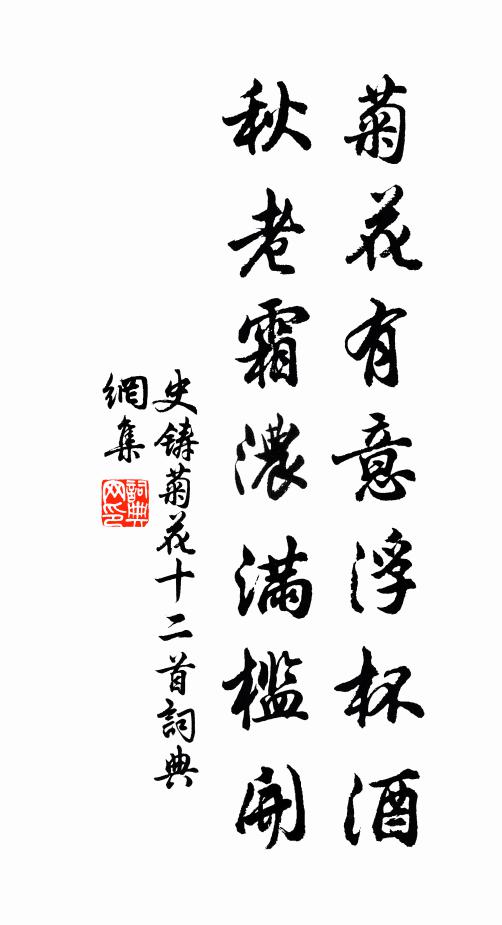 菊花有意浮杯酒
秋老霜濃滿檻開
史鑄菊花十二首詞典
網集
詞典網印